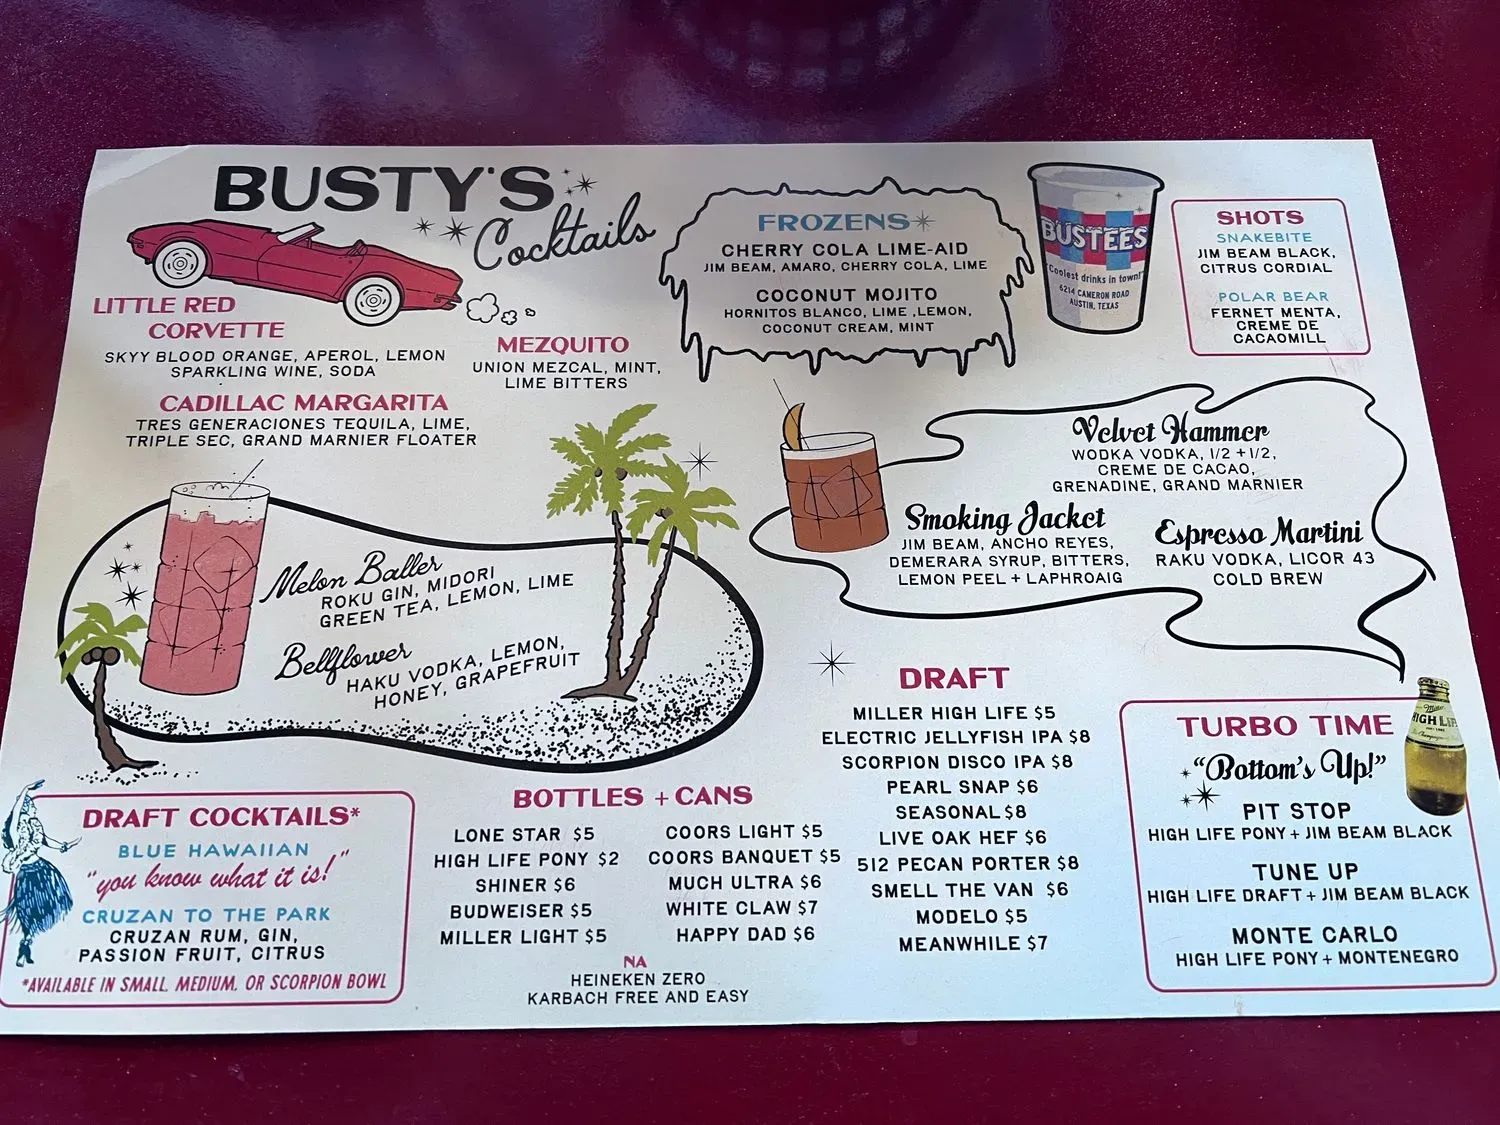 BUSTY'S
Cocktails
LITTLE RED
CORVETTE
SKYY BLOOD ORANGE, APEROL, LEMON
SPARKLING WINE, SODA
MEZQUITO
UNION MEZCAL, MINT,
LIME BITTERS
CADILLAC MARGARITA
TRES GENERACIONES TEQUILA, LIME,
TRIPLE SEC, GRAND MARNIER FLOATER
FROZENS
CHERRY COLA LIME-AID
JIM BEAM, AMARO, CHERRY COLA, LIME
COCONUT MOJITO
HORNITOS BLANCO, LIME ,LEMON,
COCONUT CREAM, MINT
BUSTEES
"Coolest drinks in town!"
6214 CAMERON ROAD
AUSTIN, TEXAS
SHOTS
SNAKEBITE
JIM BEAM BLACK,
CITRUS CORDIAL
POLAR BEAR
FERNET MENTA,
CREME DE
CACAOMILL
Melon Baller
ROKU GIN, MIDORI
GREEN TEA, LEMON, LIME
Bellflower
HAKU VODKA, LEMON,
HONEY, GRAPEFRUIT
Velvet Hammer
WODKA VODKA, 1/2 + 1/2,
CREME DE CACAO,
GRENADINE, GRAND MARNIER
Smoking Jacket
JIM BEAM, ANCHO REYES,
DEMERARA SYRUP, BITTERS,
LEMON PEEL + LAPHROAIG
Espresso Martini
RAKU VODKA, LICOR 43
COLD BREW
DRAFT COCKTAILS*
BLUE HAWAIIAN
"you know what it is!"
CRUZAN TO THE PARK
CRUZAN RUM, GIN,
PASSION FRUIT, CITRUS
*AVAILABLE IN SMALL, MEDIUM, OR SCORPION BOWL
BOTTLES + CANS
LONE STAR $5
HIGH LIFE PONY $2
SHINER $6
BUDWEISER $5
MILLER LIGHT $5
COORS LIGHT $5
COORS BANQUET $5
MUCH ULTRA $6
WHITE CLAW $7
HAPPY DAD $6
NA
HEINEKEN ZERO
KARBACH FREE AND EASY
DRAFT
MILLER HIGH LIFE $5
ELECTRIC JELLYFISH IPA $8
SCORPION DISCO IPA $8
PEARL SNAP $6
SEASONAL $8
LIVE OAK HEF $6
512 PECAN PORTER $8
SMELL THE VAN $6
MODELO $5
MEANWHILE $7
TURBO TIME
"Bottom's Up!"
PIT STOP
HIGH LIFE PONY + JIM BEAM BLACK
TUNE UP
HIGH LIFE DRAFT + JIM BEAM BLACK
MONTE CARLO
HIGH LIFE PONY + MONTENEGRO
Miller
HIGH LIFE